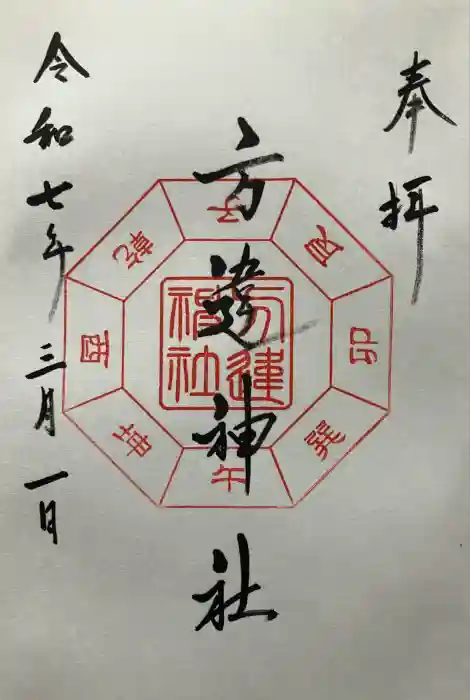 奉拝
方違神社
令和七年三月一日
方違
神社
子
艮
卯
巽
午
坤
酉
乾